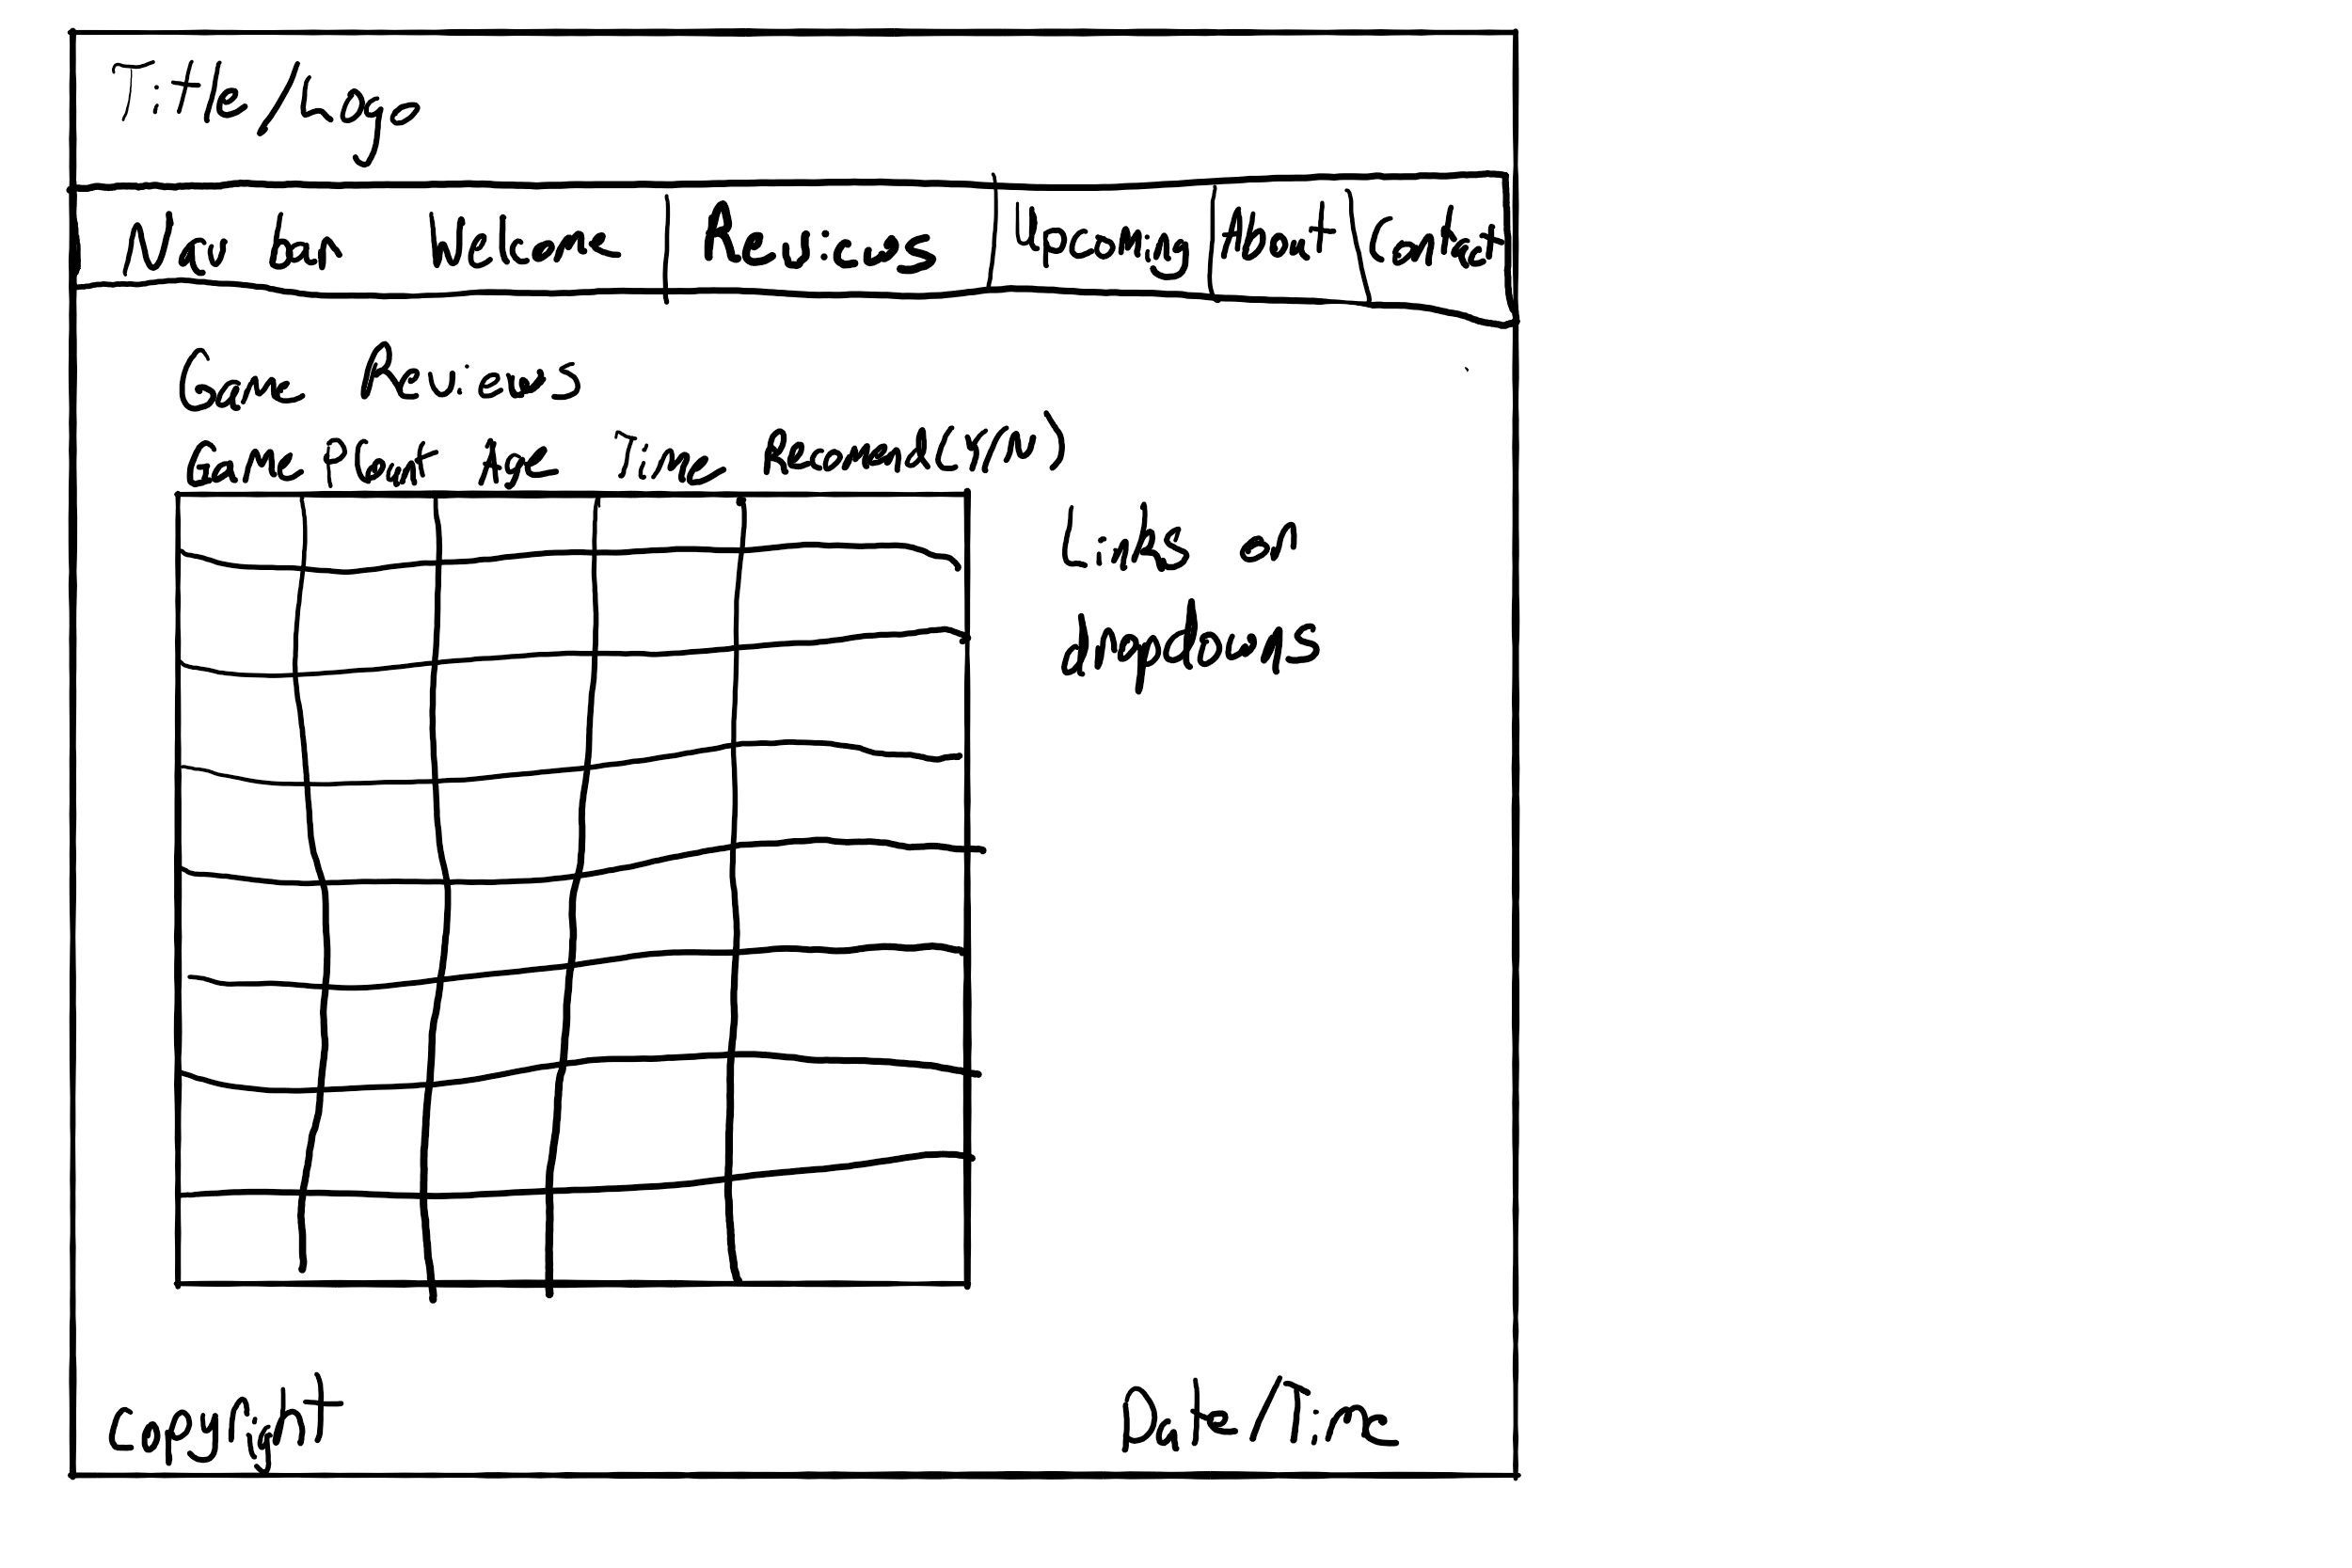 Title/Logo
Nav bar Welcome Reviews Upcoming About Contact
Game Reviews
Game Pcount Age Time Recomend(Y/N)
Links or
dropdowns
Copyright Date/Time